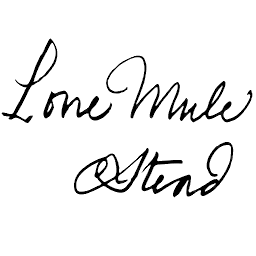 Lone Mule
Ostend